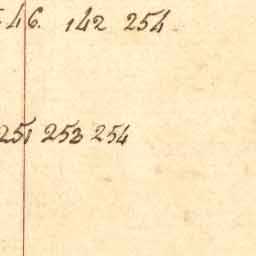 46. 142 254
251 253 254